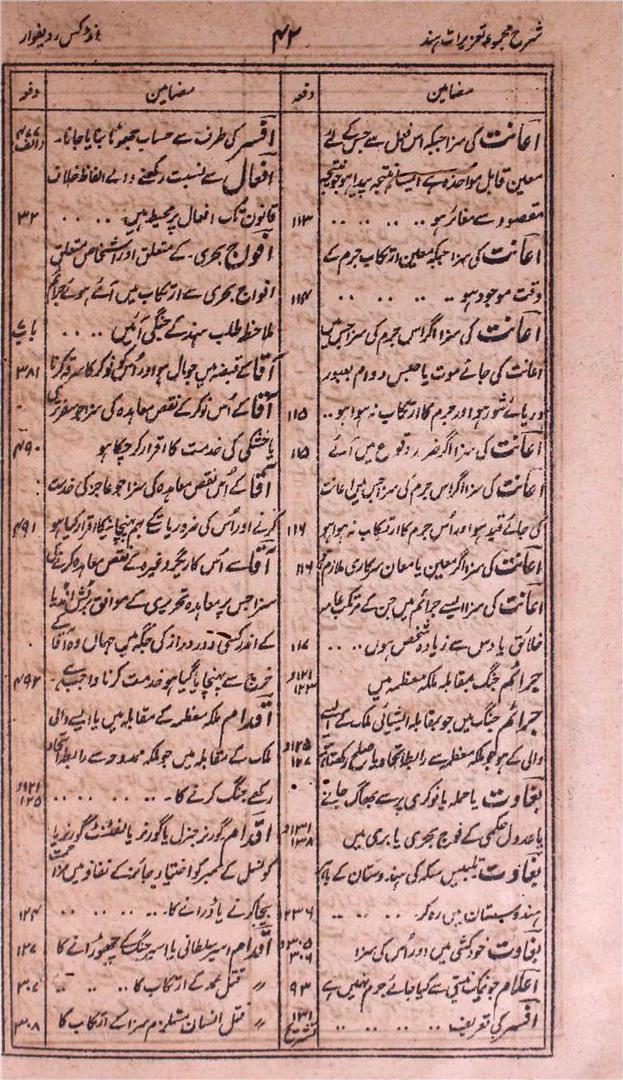 شرح مجموعہ تعزیرات ہند
۴۲
انڈکس ردیفوار
مضامین
دفعہ
اعانت کی سزا جبکہ اس فعل سے جس کے لئے
معین قابل مواخذہ ہے ایسا نتیجہ پیدا ہو جو نتیجہ
مقصود سے مغائر ہو .. .. .. .. ۱۱۳
اعانت کی سزا جبکہ معین ارتکاب جرم کے
وقت موجود ہو .. .. .. .. ۱۱۴
اعانت کی سزا اگر اس جرم کی سزا جس میں
اعانت کی جائے موت یا حبس دوام بعبور
دریائے شور ہو اور جرم کا ارتکاب نہ ہوا ہو .. ۱۱۵
اعانت کی سزا اگر ضرر وقوع میں آئے ۱۱۵
اعانت کی سزا اگر اس جرم کی سزا جس میں اعانت
کی جائے قید ہو اور اس جرم کا ارتکاب نہ ہوا ہو ۱۱۶
اعانت کی سزا اگر معین یا معان سرکاری ملازم ہو ۱۱۶
اعانت کی سزا ایسے جرائم میں جن کے مرتکب عامہ
خلائق یا دس سے زیادہ شخص ہوں .. .. ۱۱۷
جرائم جنگ بمقابلہ ملکہ معظمہ میں ۱۲۱ و ۱۲۳
جرائم جنگ میں جو بمقابلہ ایشیائی ملک کے ایسے
والی کے ہو جو ملکہ معظمہ سے رابطہ اتحاد یا صلح رکھتا ہو ۱۲۵ و ۱۲۷
بغاوت یا حملہ یا نوکری پر سے بھاگ جانے
یا عدول حکمی کے فوج بحری یا بری میں ۱۳۱ و ۱۳۸
بغاوت تلبیس سکہ کی ہندوستان کے باہر
ہندوستان میں رہ کر .. .. .. .. ۲۳۶
بغاوت خودکشی میں اور اُس کی سزا ۳۰۵ و ۳۰۶
اعلام جو نیک نیتی سے کیا جائے جرم نہیں ہے ۹۳
افسر کی تعریف .. .. .. .. ۱۳۱ تشریح
مضامین
دفعہ
افسر کی طرف سے حساب جھوٹا بنایا جانا۔ ۴۷۷ (الف)
افعال سے نسبت رکھنے والے الفاظ خلاف
قانون ترک افعال پر محیط ہیں .. .. .. ۳۲
افواج بحری۔ کے متعلق اور اشخاص متعلق
افواج بحری سے ارتکاب میں آئے ہوئے جرائم
ملاحظہ طلب ہند کے جنگی آئین .. .. .. باب
آقا کے قبضہ میں جو مال ہو اور اُس کی نوکر کا سرقہ کرنا ۳۸۱
آقا کے اُس نوکر کے نقض معاہدہ کی سزا جو سفر تری
یا خشکی کی خدمت کا اقرار کر چکا ہو ۴۹۰
آقا کے اُس نقض معاہدہ کی سزا جو عاجز کی خدمت
کرنے اور اُس کی ضروریات کے بہم پہنچانیکا اقرار کیا ہو ۴۹۱
آقا سے اُس کاریگر وغیرہ کے نقض معاہدہ کرنے کی
سزا جس پر معاہدہ تحریری کے موافق برٹش انڈیا
کے اندر کسی دور دراز کی جگہ میں جہاں وہ آقا کے
خرچ سے پہنچایا گیا ہو خدمت کرنا واجب ہے۔ ۴۹۲
اقدام ملکہ معظمہ کے مقابلہ میں یا ایسے والی
ملک کے مقابلہ میں جو ملکہ ممدوحہ سے رابطہ اتحاد
رکھے جنگ کرنے کا۔ .. .. .. .. ۱۲۱ و ۱۲۵
اقدام گورنر جنرل یا گورنر یا لفٹننٹ گورنر یا
کونسل کے ممبر کو اختیار جائز کے نفاذ میں مزاحمت
بیجا کرنے یا ڈرانے کا۔ .. .. .. .. ۱۲۴
اقدام اسیر سلطانی یا اسیر جنگ کے چھوڑانے کا ۱۲۷
〃 قتل عمد کے ارتکاب کا .. .. .. ۳۰۷
〃 قتل انسان مستلزم سزا کے ارتکاب کا ۳۰۸